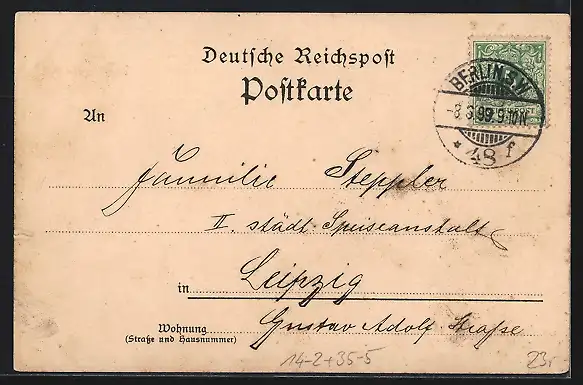 Deutsche Reichspost
Postkarte
BERLIN S.W.
-8.3.99.9-10N.
* 48 f
An
Familie Steppler
II. städt. Speiseanstalt
in Leipzig
Wohnung
(Straße und Hausnummer)
Gustav Adolf-Straße
14-2+35-5